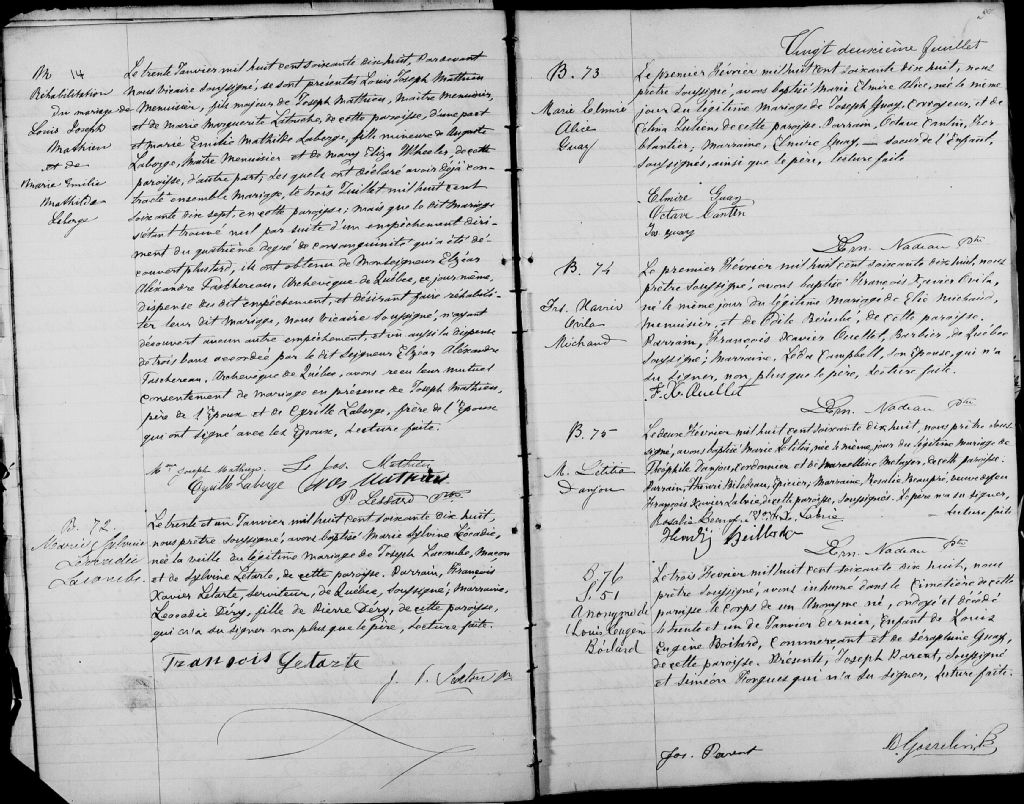 M 14
Réhabilitation
du mariage de
Louis Joseph
Mathieu
et de
Marie Emilie
Mathilde
Laberge
Le trente Janvier mil huit cent soixante dix huit, Par devant
Nous vicaire soussigné, se sont présentés Louis Joseph Mathieu
Menuisier, fils majeur de Joseph Mathieu, Maître menuisier,
et de Marie Marguerite Latouche, de cette paroisse, d'une part
et Marie Emilie Mathilde Laberge, fille mineure de Auguste
Laberge, Maître Menuisier et de Mary Eliza Wheeler, de cette
paroisse, d'autre part, Les quels ont déclaré avoir déjà con-
tracté ensemble Mariage, le trois Juillet mil huit cent
soixante dix sept, en cette paroisse; mais que le dit mariage
s'étant trouvé nul par suite d'un empêchement diri-
ment du quatrième degré de consanguinité qui a été dé-
couvert plus tard, ils ont obtenu de Monseigneur Elzéar
Alexandre Taschereau, Archevêque de Québec, ce jour même,
dispense du dit empêchement, et désirant faire réhabili-
ter leur dit mariage, nous vicaire soussigné, n'ayant
découvert aucun autre empêchement, et vu aussi la dispense
de trois bans accordée par le dit Seigneur Elzéar Alexandre
Taschereau, Archevêque de Québec, avons reçu leur mutuel
consentement de mariage en présence de Joseph Mathieu,
père de l'Epoux et de Cyrille Laberge, frère de l'Epouse
qui ont signé avec les Epoux. Lecture faite.
Joseph Mathieu
Ls Jos. Mathieu
Cyrille Laberge
Mathieu
Ptre
B. 72.
Marie Sylvine
Leocadie
Lacombe.
Le trente et un Janvier mil huit cent soixante dix huit,
nous prêtre soussigné, avons baptisé Marie Sylvine Leocadie,
née la veille du légitime mariage de Joseph Lacombe, Maçon
et de Sylvine Letarte, de cette paroisse. Parrain, François
Xavier Letarte, serviteur, de Québec, soussigné; marraine,
Leocadie Déry, fille de Pierre Déry, de cette paroisse,
qui n'a su signer non plus que le père, Lecture faite.
François Letarte
J. Sexton Ptre
Vingt deuxième feuillet
B. 73
Marie Elmire
Alice
Guay
Le premier Février mil huit cent soixante dix huit, nous
prêtre soussigné, avons baptisé Marie Elmire Alice, née le même
jour du légitime mariage de Joseph Guay, Corroyeur, et de
Celina Julien de cette paroisse. Parrain, Octave Cantin, Fer-
blantier; Marraine, Elmire Guay, — soeur de l'Enfant,
soussignés, ainsi que le père, lecture faite
Elmire Guay
Octave Cantin
Jos. Guay
Dom. Nadeau Ptre
B. 74
Frs. Xavier
Ovila
Michaud
Le premier Février mil huit cent soixante dix huit, nous
prêtre soussigné, avons baptisé François Xavier Ovila,
né le même jour du légitime mariage de Elie Michaud,
menuisier, et de Odile Bérubé, de cette paroisse.
Parrain, François Xavier Ouellet, Barbier, de Québec
soussigné; marraine, Léda Campbell, son épouse, qui n'a
su signer, non plus que le père, Lecture faite.
F. X. Ouellet
Dom. Nadeau Ptre
B. 75
M. Létitia
Danjou
Le deux Février mil huit cent soixante dix huit, nous prêtre sous-
signé, avons baptisé Marie née le même jour du légitime mariage de
Théophile Danjou, Cordonnier et de Marcelline Métayer, de cette paroisse.
Parrain, Henri Bilodeau, Epicier; Marraine, Rosalie Beaupré, veuve de feu
François Xavier Labrie, de cette paroisse, soussignés. Le père n'a su signer,
— Lecture faite
Rosalie Labrie
Dom. Nadeau Ptre
B 76
S. 51
Anonyme de
Louis Eugène
Boilard
Le trois Février mil huit cent soixante dix huit, nous
prêtre soussigné, avons inhumé dans le Cimetière de cette
paroisse le corps de un Anonyme né, ondoyé et décédé
le trente et un de Janvier dernier, Enfant de Louis
Eugène Boilard, Commerçant et de Séraphine Guay,
de cette paroisse. Présents, Joseph Parent, soussigné
et Siméon qui n'a su signer, Lecture faite.
Jos. Parent
D. Gosselin Ptre